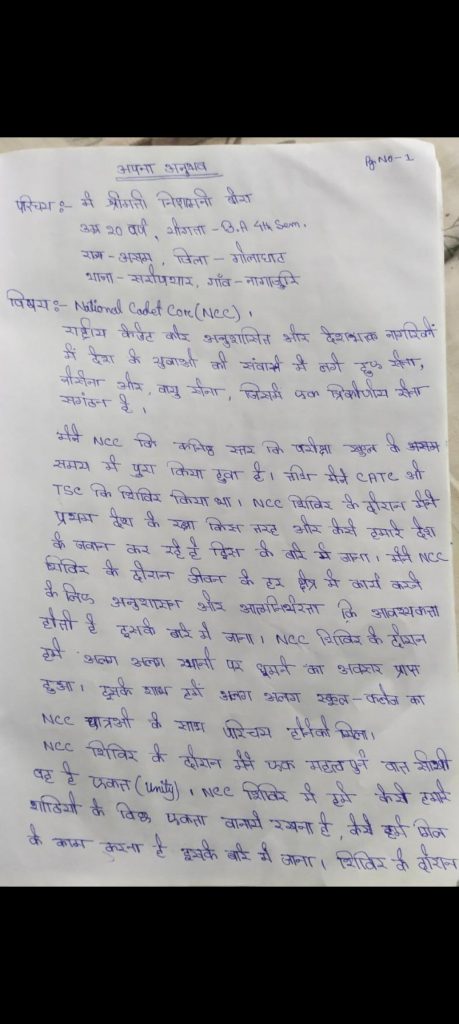 अपना अनुभव
Pg No-1
परिचय :- मैं श्रीमती निशामनी बोरा
उम्र 20 वर्ष, योग्यता - B.A 4th Sem.
राज्य - असम, जिला - गोलाघाट
थाना - सरुपथार, गाँव - नागाजुरि
विषय :- National Cadet Core (NCC),
राष्ट्रीय कैडेट कोर अनुशासित और देशभक्त नागरिकों
में देश के युवाओं को संवारने में लगे हुए सेना,
नौसेना और, वायु सेना, जिसमें एक त्रिकोणीय सेना
संगठन है।
मैंने NCC कि कनिष्ठ स्तर कि परीक्षा स्कूल के
समय में पुरा किया हुवा है। मैंने CATC औ
TSC कि शिविर किया था। NCC शिविर के दौरान मैंने
प्रथम देश के रक्षा किस तरह और कैसे हमारे देश
के जवान कर रहे है इस के बारे में जाना। मैंने NCC
शिविर के दौरान जीवन के हर क्षेत्र में कार्य करने
के लिए अनुशासन और आत्मनिर्भरता कि आवश्यकता
होती है इसके बारे में जाना। NCC शिविर के दौरान
हमें अलग अलग स्थानों पर घूमने का अवसर प्राप्त
हुआ। इसके साथ हमें अलग अलग स्कूल-कलेज का
NCC छात्रओं के साथ परिचय होनेको मिला।
NCC शिविर के दौरान मैंने एक महत्वपुर्न बात सीखी
वह है एकता (Unity)। NCC शिविर में हमें कैसे हमारे
साथियों के बिच एकता बानाये रखना है, कैसे हमें मिल
के काम करना है इसके बारे में जाना। शिविर के दौरान